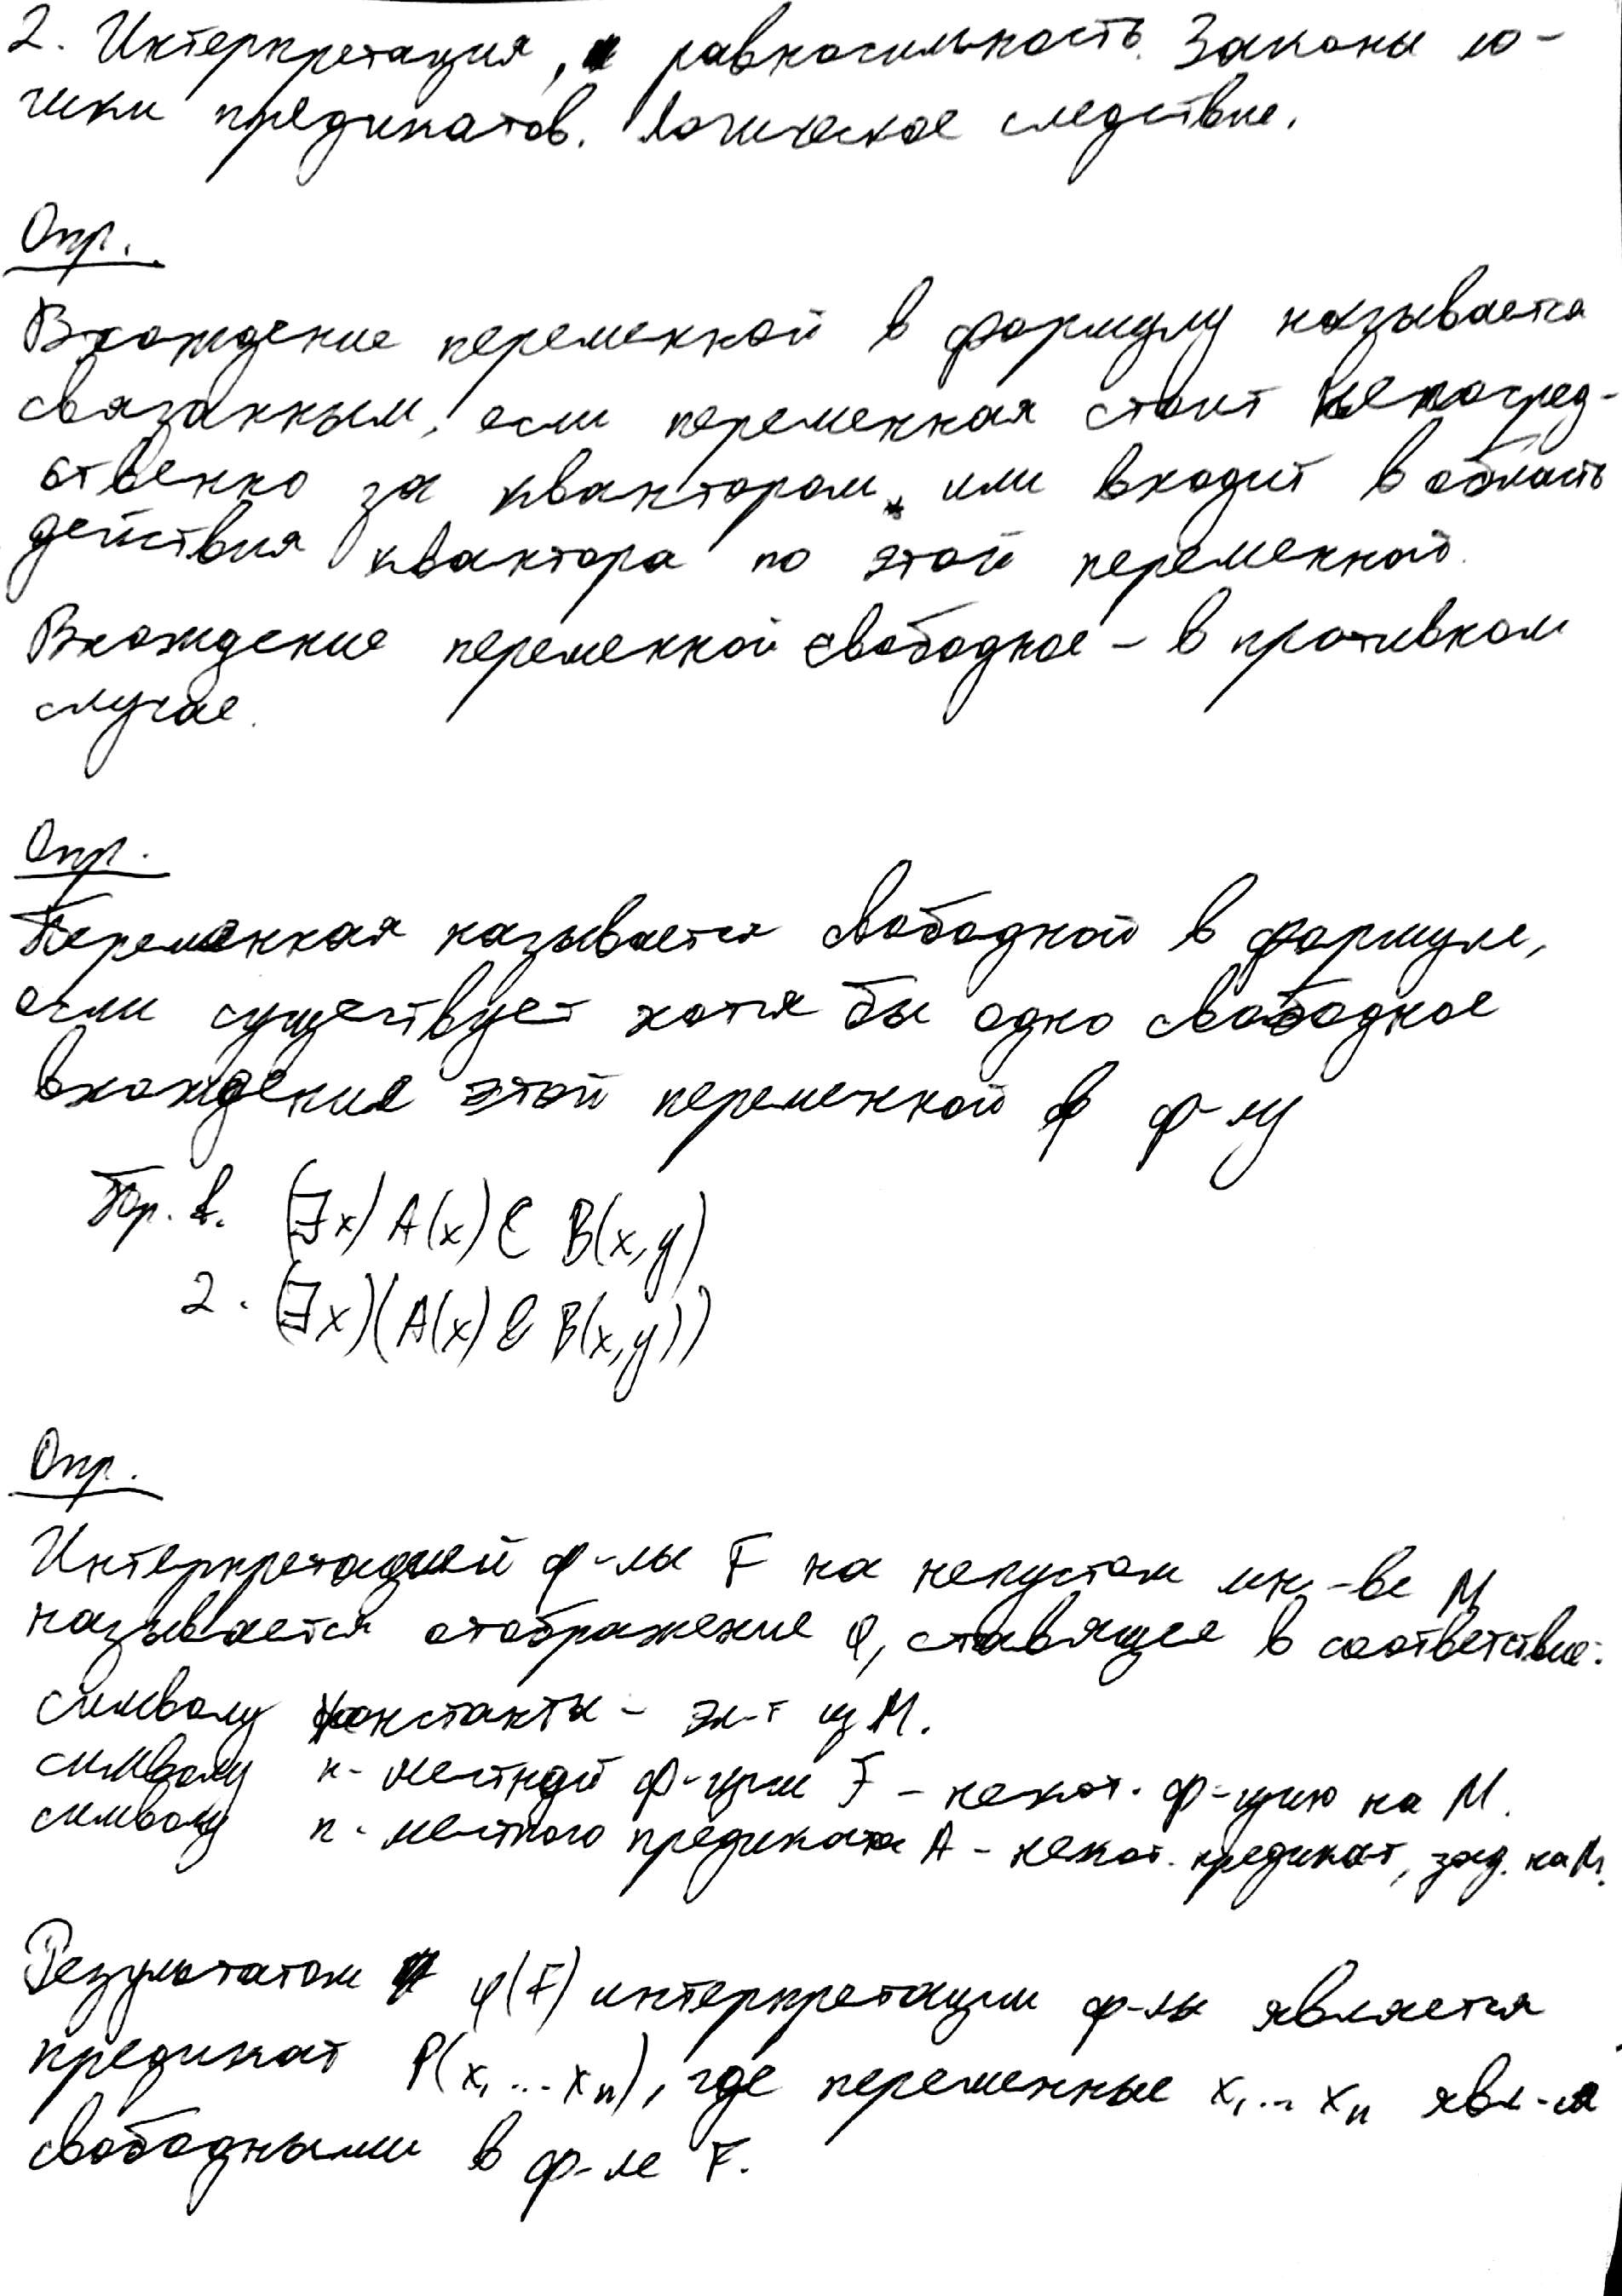 2. Интерпретация, равносильность. Законы ло-
гики предикатов. Логическое следствие.
Опр.
Вхождение переменной в формулу называется
связанным, если переменная стоит непосред-
ственно за квантором или входит в область
действия квантора по этой переменной.
Вхождение переменной свободное – в противном
случае.
Опр.
Переменная называется свободной в формуле,
если существует хотя бы одно свободное
вхождение этой переменной в ф-лу
Пр. 1. (∃x) A(x) & B(x,y)
2. (∃x)(A(x) & B(x,y))
Опр.
Интерпретацией ф-лы F на непустом мн-ве M
называется отображение φ, ставящее в соответствие:
символу константы – эл-т из M.
символу n-местной ф-ции F – некот. ф-цию на M.
символу n-местного предиката A – некот. предикат, зад. на M.
Результатом φ(F) интерпретации ф-лы является
предикат P(x₁ ... xₙ), где переменные x₁ ... xₙ явл-ся
свободными в ф-ле F.